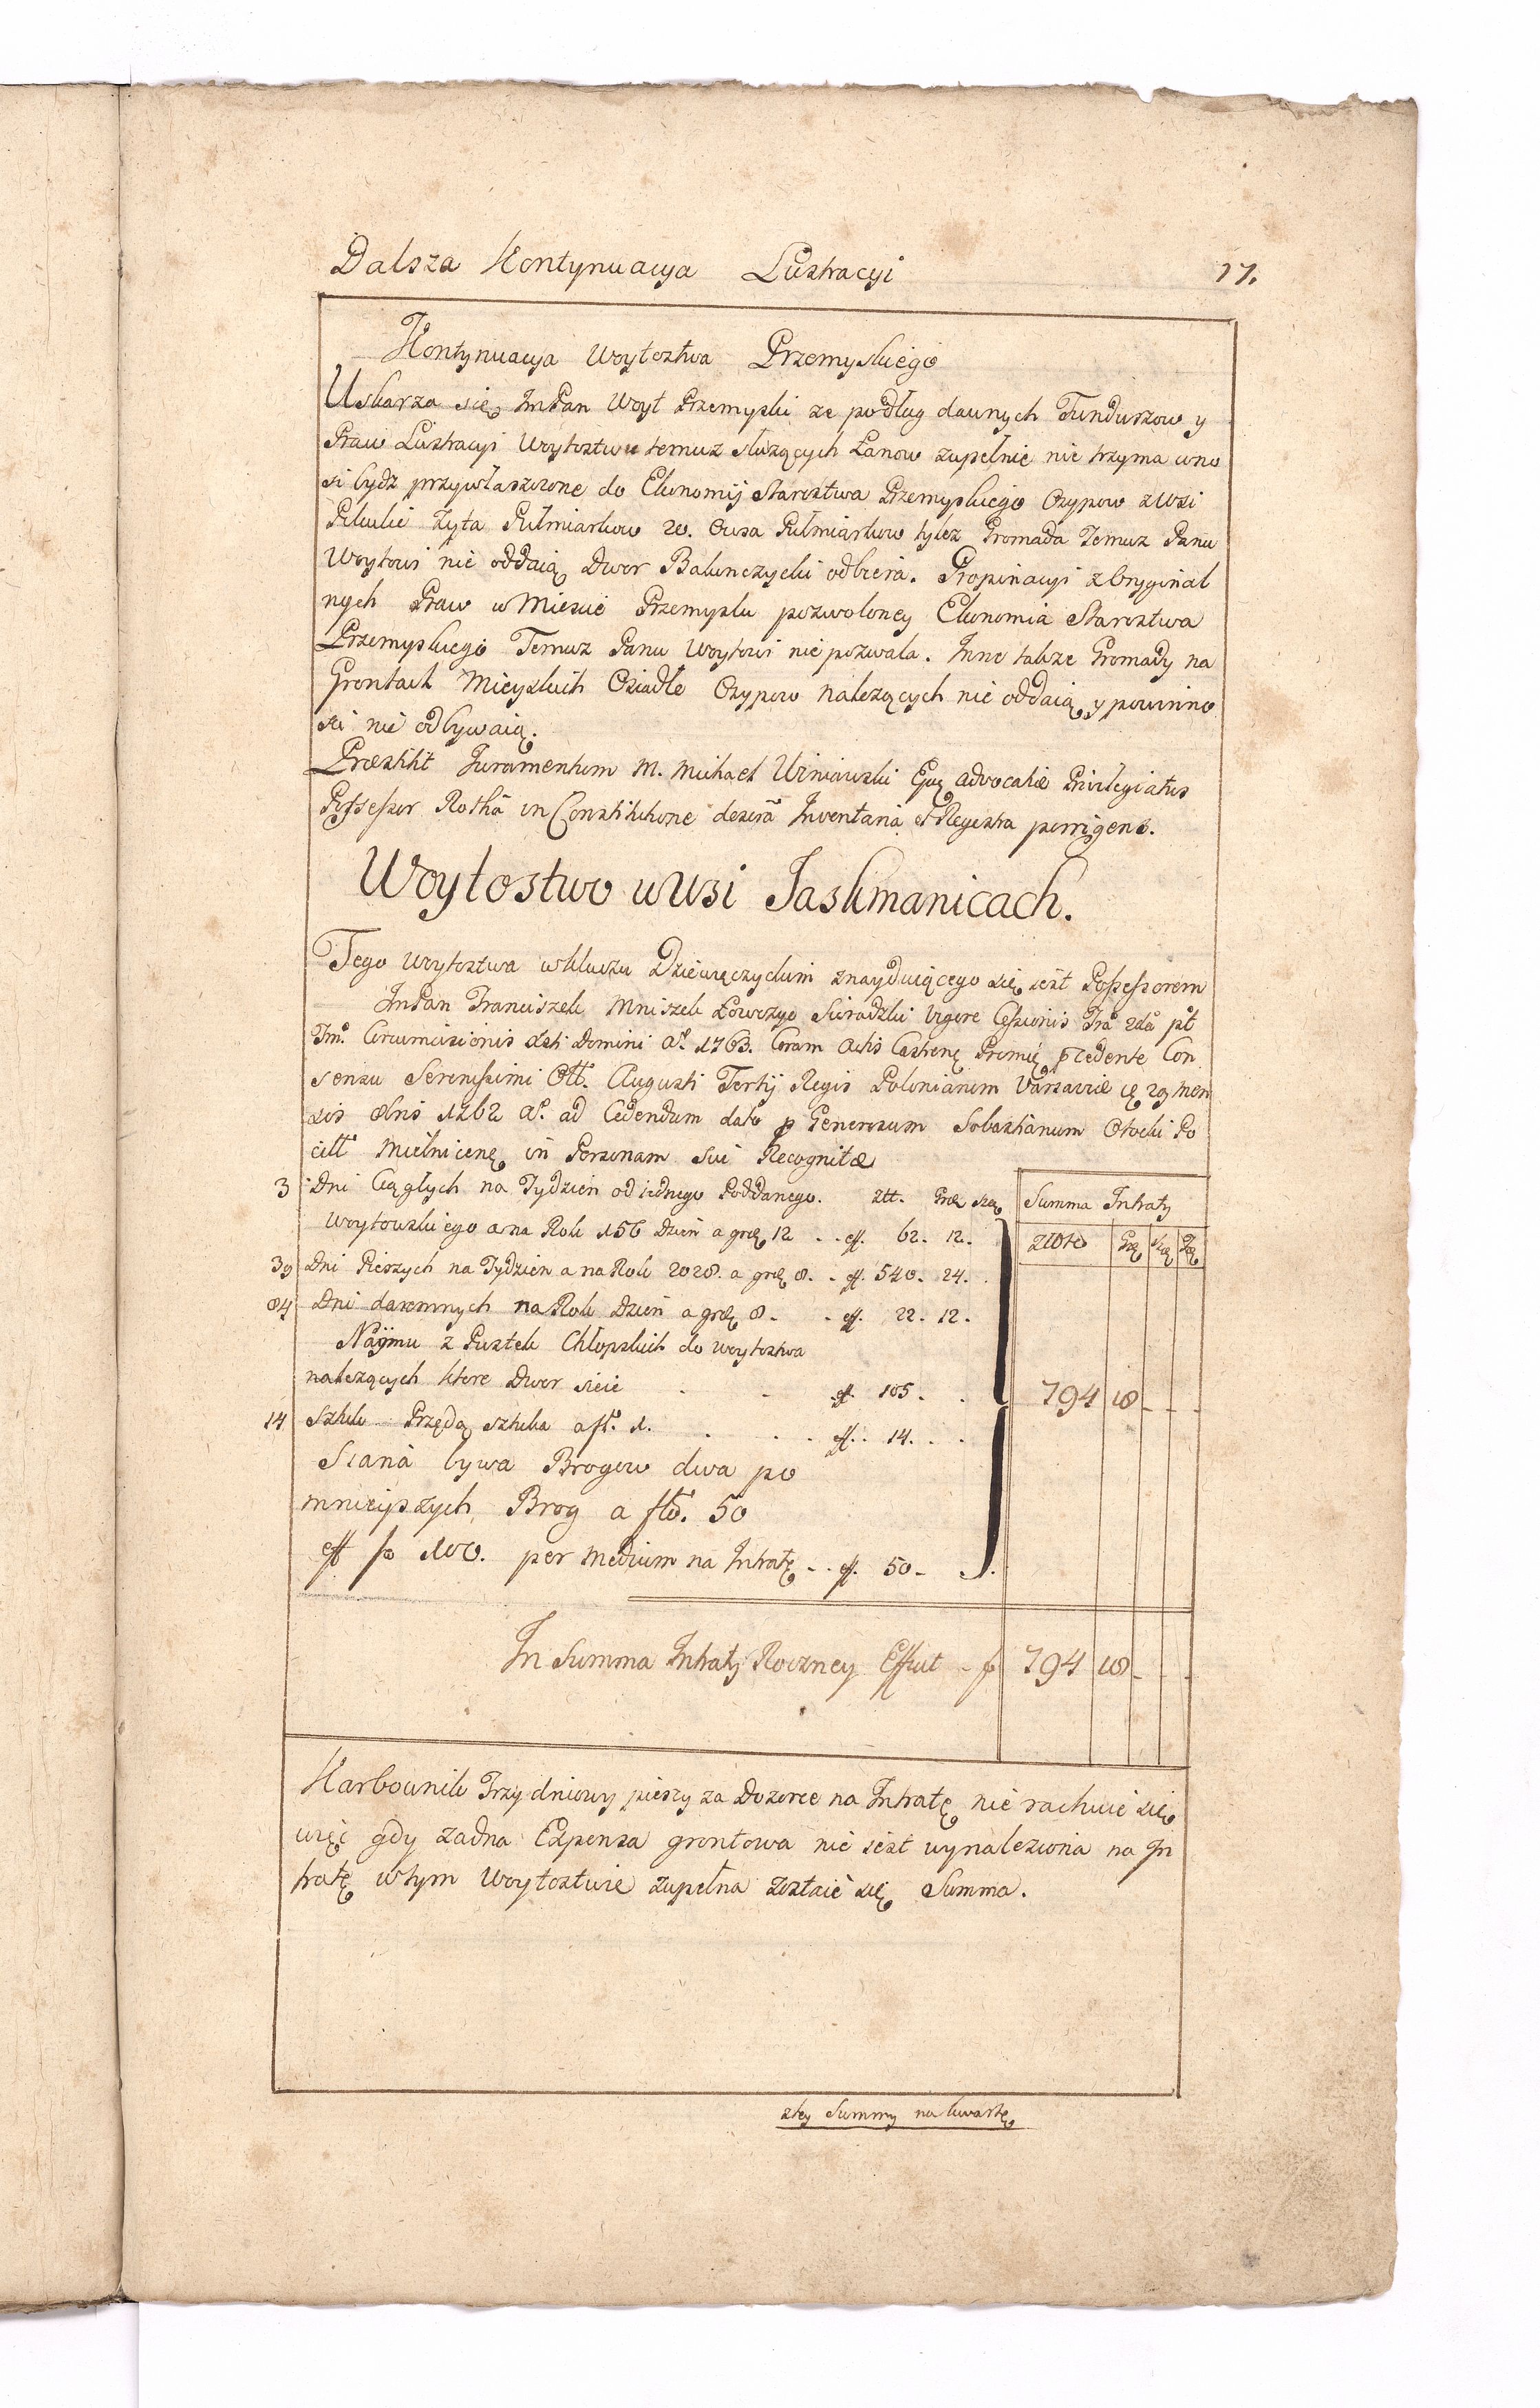 Dalsza Kontynuacya Lustracyi 17.
Kontynuacya Woytostwa Przemyskiego
Uskarza się JmPan Woyt Przemyski ze podług dawnych Funduszow y
Praw Lustracyi Woytostwu temuz służących Łanow zupełnie nie trzyma wno
si bydz przywłaszczone do Ekonomij Starostwa Przemyskiego Osypow z Wsi
Pikulic Zyta Pułmiarkow 20. Owsa Pułmiarkow tylez Gromada Temuz Panu
Woytowi nie oddaią Dwor Bakunczycki odbiera. Propinacyi z Oryginal
nych Praw w Miescie Przemyslu pozwoloney Ekonomia Starostwa
Przemyskiego Temuz Panu Woytowi nie pozwala. Inne takze Gromady na
Grontach Mieyskich Osiadłe Osypow nalezących nie oddaią y powinno
sci nie odbywaią.
Præstitit Juramentum M. Michael Winiawski Ejus advocatiæ Privilegiatus
Possessor Rothā in Constitutione descrā Inventaria et Regestra porrigens.
Woytostwo w Wsi Jaskmanicach.
Tego Woytostwa w Kluczu Dziewięczyckim znayduiącego się iest Possessorem
JmPan Franciszek Mniszek Łowczyc Sieradzki vigore Cessionis Fra 2da pt
Fm Circumcisionis Xsti Domini Ao. 1763. Coram Actis Castren Premis przedente Con
sensu Serenissimi Olt. Augusti Tertij Regis Poloniarum Varsaviæ 29 Men
sis 8bris 1762 Ao. ad Cedendum dato p Generosum Sebastianum Otocki Po
cill Mielnicen in Personam Sui Recognitæ
3 Dni Ciągłych na Tydzien od iednego Poddanego. Złt. Gro sze Summa Intraty
Woytowskiego a na Rok 156 Dzien a gro 12 . . eff. 62. 12. złote Gro
39 Dni Pieszych na Tydzien a na Rok 2028. a gro 8. . eff. 540. 24.
84 Dni daremnych na Rok Dzien a gro 8. . eff. 22. 12.
Naymu z Pustek Chłopskich do Woytostwa
nalezących ktore Dwor sieie . . eff. 105. . 794 18 - - -
14 Sztuk Przędą sztuka a fl. 1. . . . eff. 14. . .
Siana bywa Brogow dwa po
mnieyszych Brog a flo. 50
eff fo 100. per medium na Intratę . . eff. 50.
In Summa Intraty Roczney Efficit - f 794 18 - - -
Karbownik Trzydniowy pieszy za Dozorce na Intratę nie rachuie się
więc gdy zadna Expensa grontowa nie iest wynaleziona na In
tratę w tym Woytostwie zupełna zostaie się Summa.
z tey Summy na kwartę